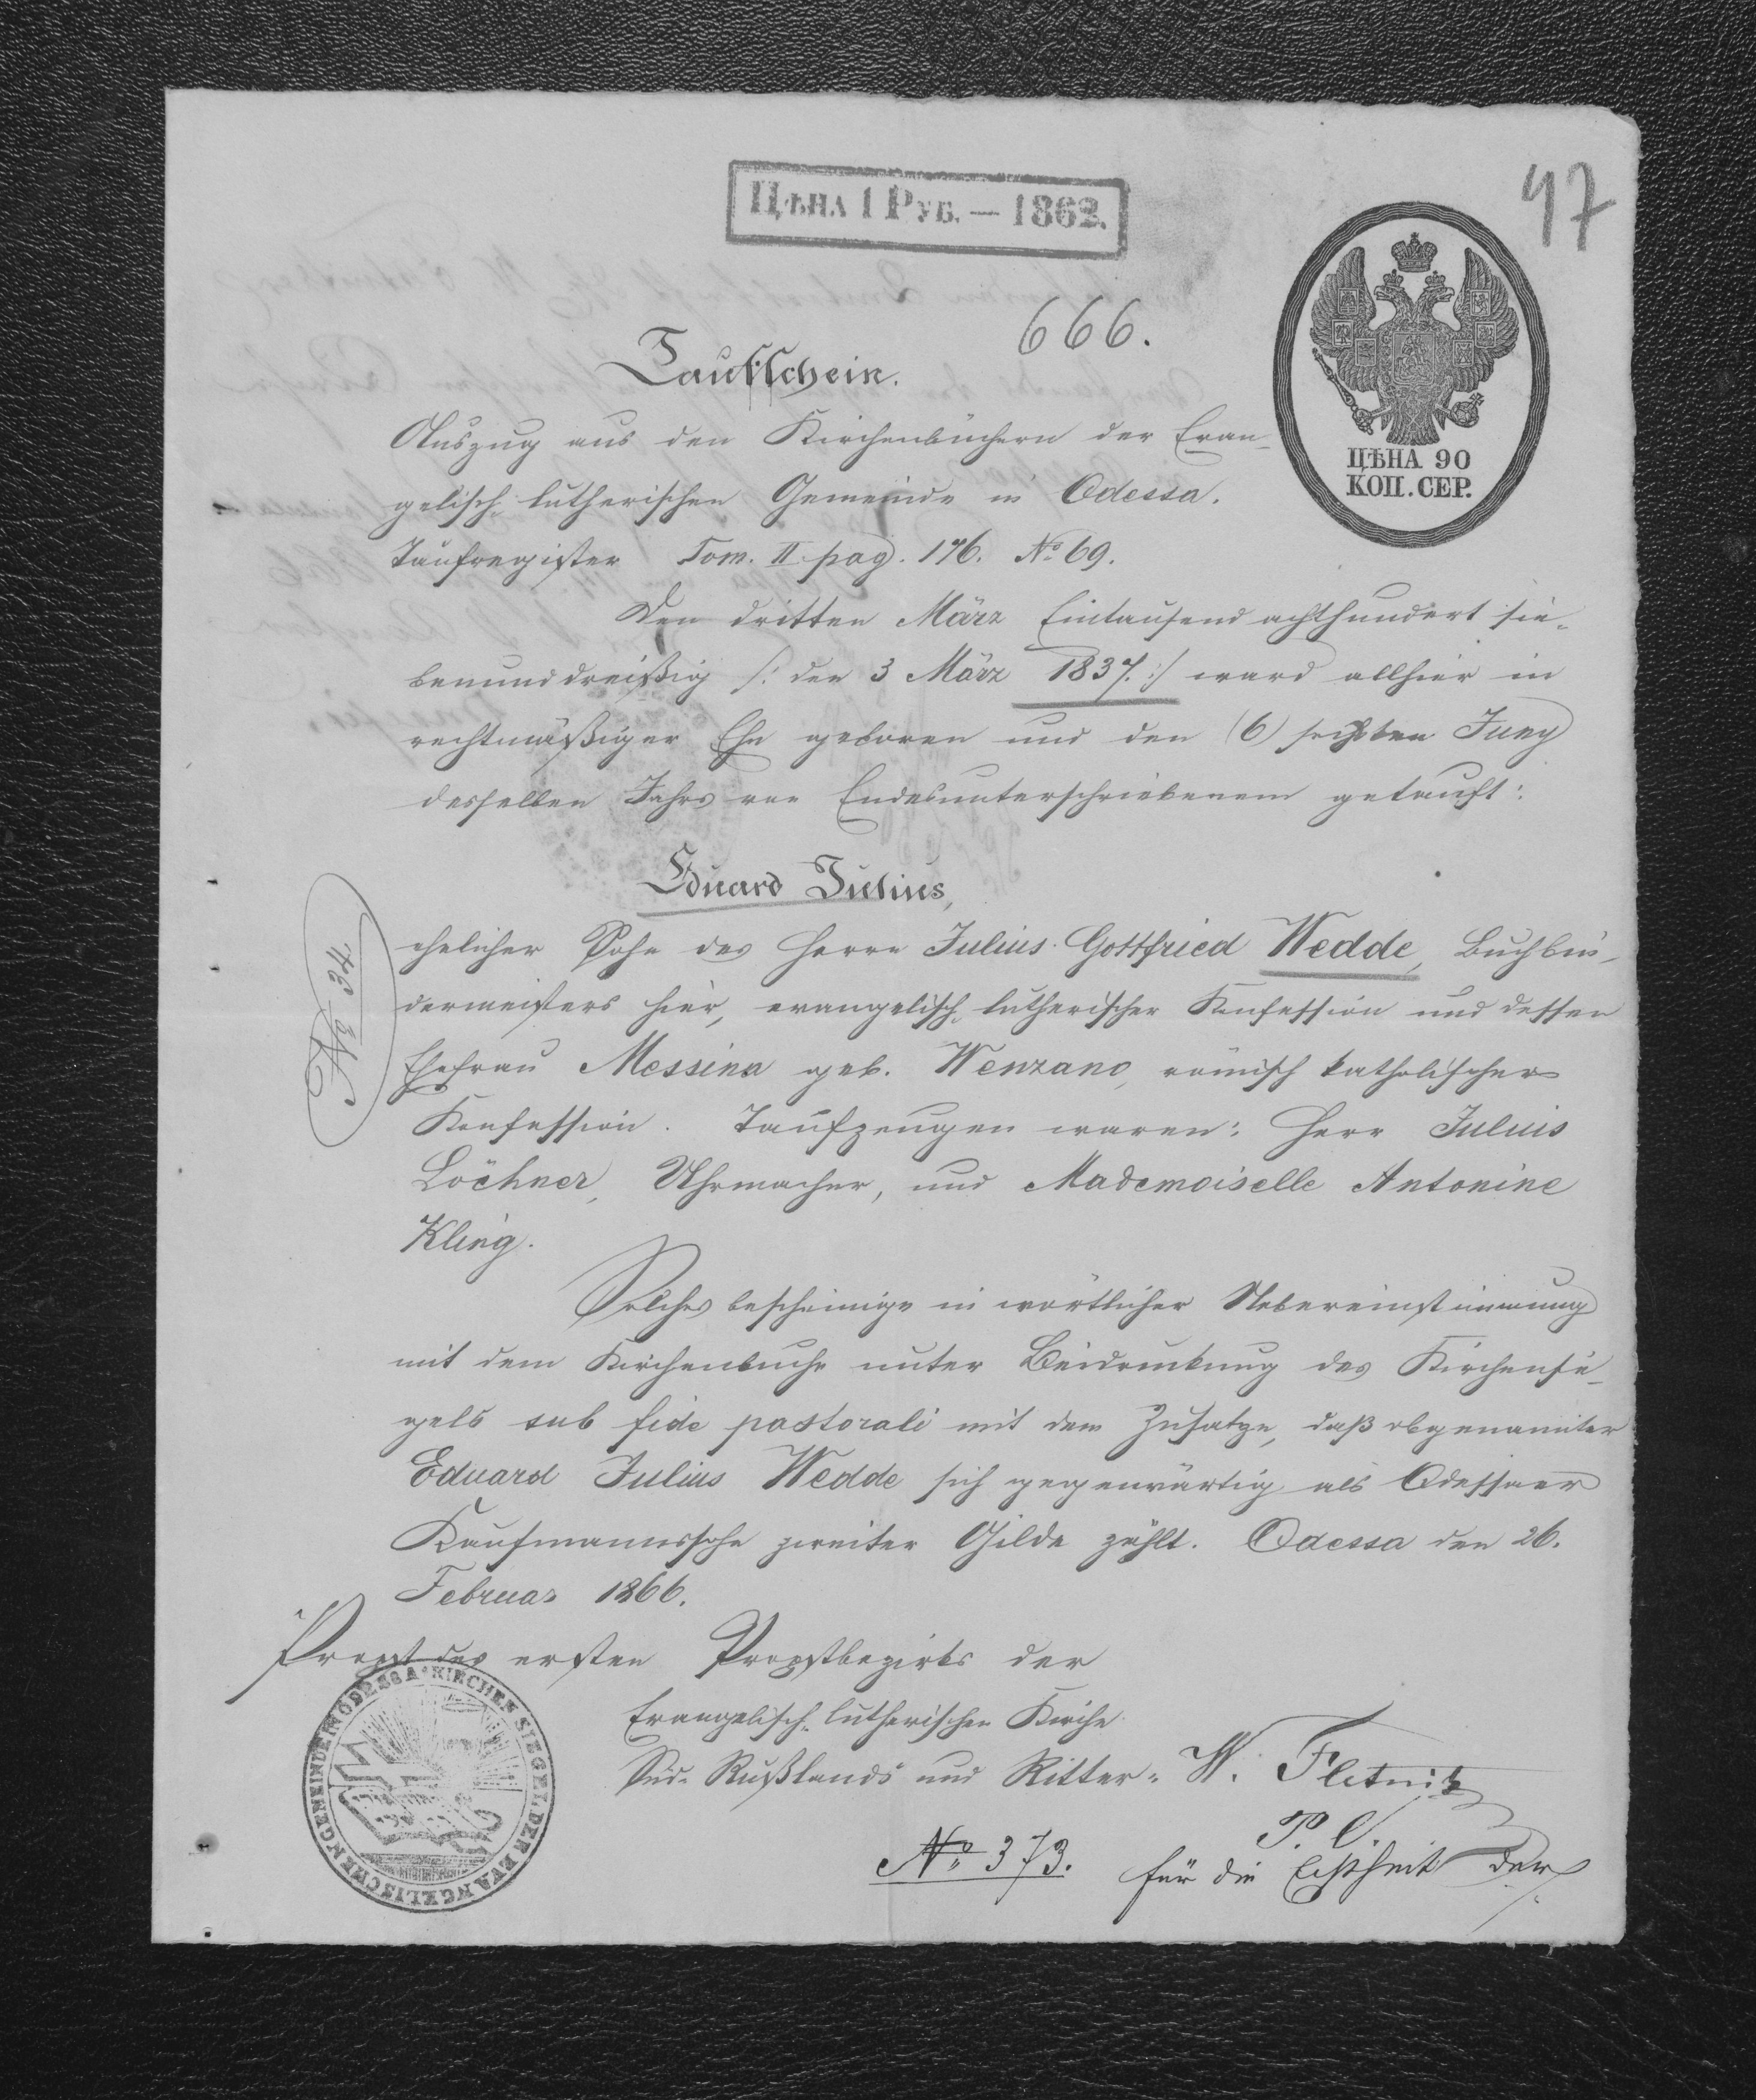 Цѣна 1 Руб. — 1862.
47
666.
ЦѢНА 90
КОП. СЕР.
Taufschein.
Auszug aus den Kirchenbüchern der Evan-
gelisch-lutherischen Gemeinde in Odessa.
Taufregister Tom. II pag. 176. No 69.
Den dritten März Eintausend achthundert sie-
benunddreißig /: den 3 März 1837. :/ ward allhier in
rechtmäßiger Ehe geboren und den (6) sechsten Juny
desselben Jahrs von Endesunterschriebenem getauft:
Eduard Julius,
ehelicher Sohn des Herrn Julius Gottfried Wedde, Buchbin-
dermeisters hier, evangelisch-lutherischer Konfession und dessen
Ehefrau Messina geb. Wenzano, römisch katholischer
Konfession. Taufzeugen waren: Herr Julius
Löchner, Uhrmacher, und Mademoiselle Antonine
Kling.
No 34
Solches bescheinige in wörtlicher Uebereinstimmung
mit dem Kirchenbuche unter Beidruckung des Kirchensie-
gels sub fide pastorali mit dem Zusatze, daß obgenannter
Eduard Julius Wedde sich gegenwärtig als Odessaer
Kaufmannssohn zweiter Gilde zählt. Odessa den 26.
Februar 1866.
Propst des ersten Propstbezirks der
Evangelisch-lutherischen Kirche
Süd-Rußlands und Ritter: W. Fletnitz
KIRCHEN SIEGEL DER EVANGELISCHEN GEMEINDE IN ODESSA
No 373. für die Echtheit der